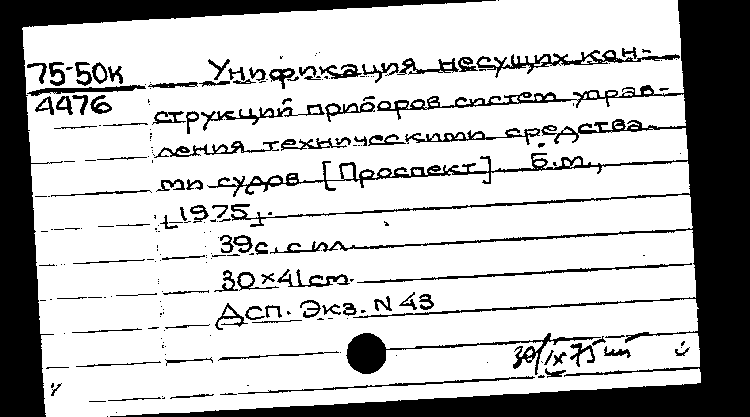 75-50к Унификация несущих кон-
4476 струкций приборов систем управ-
ления техническими средства-
ми судов [Проспект]. Б.м.,
[1975].
39с. с ил.
30×41см.
Дсп. Экз. N 43
30/IX 75